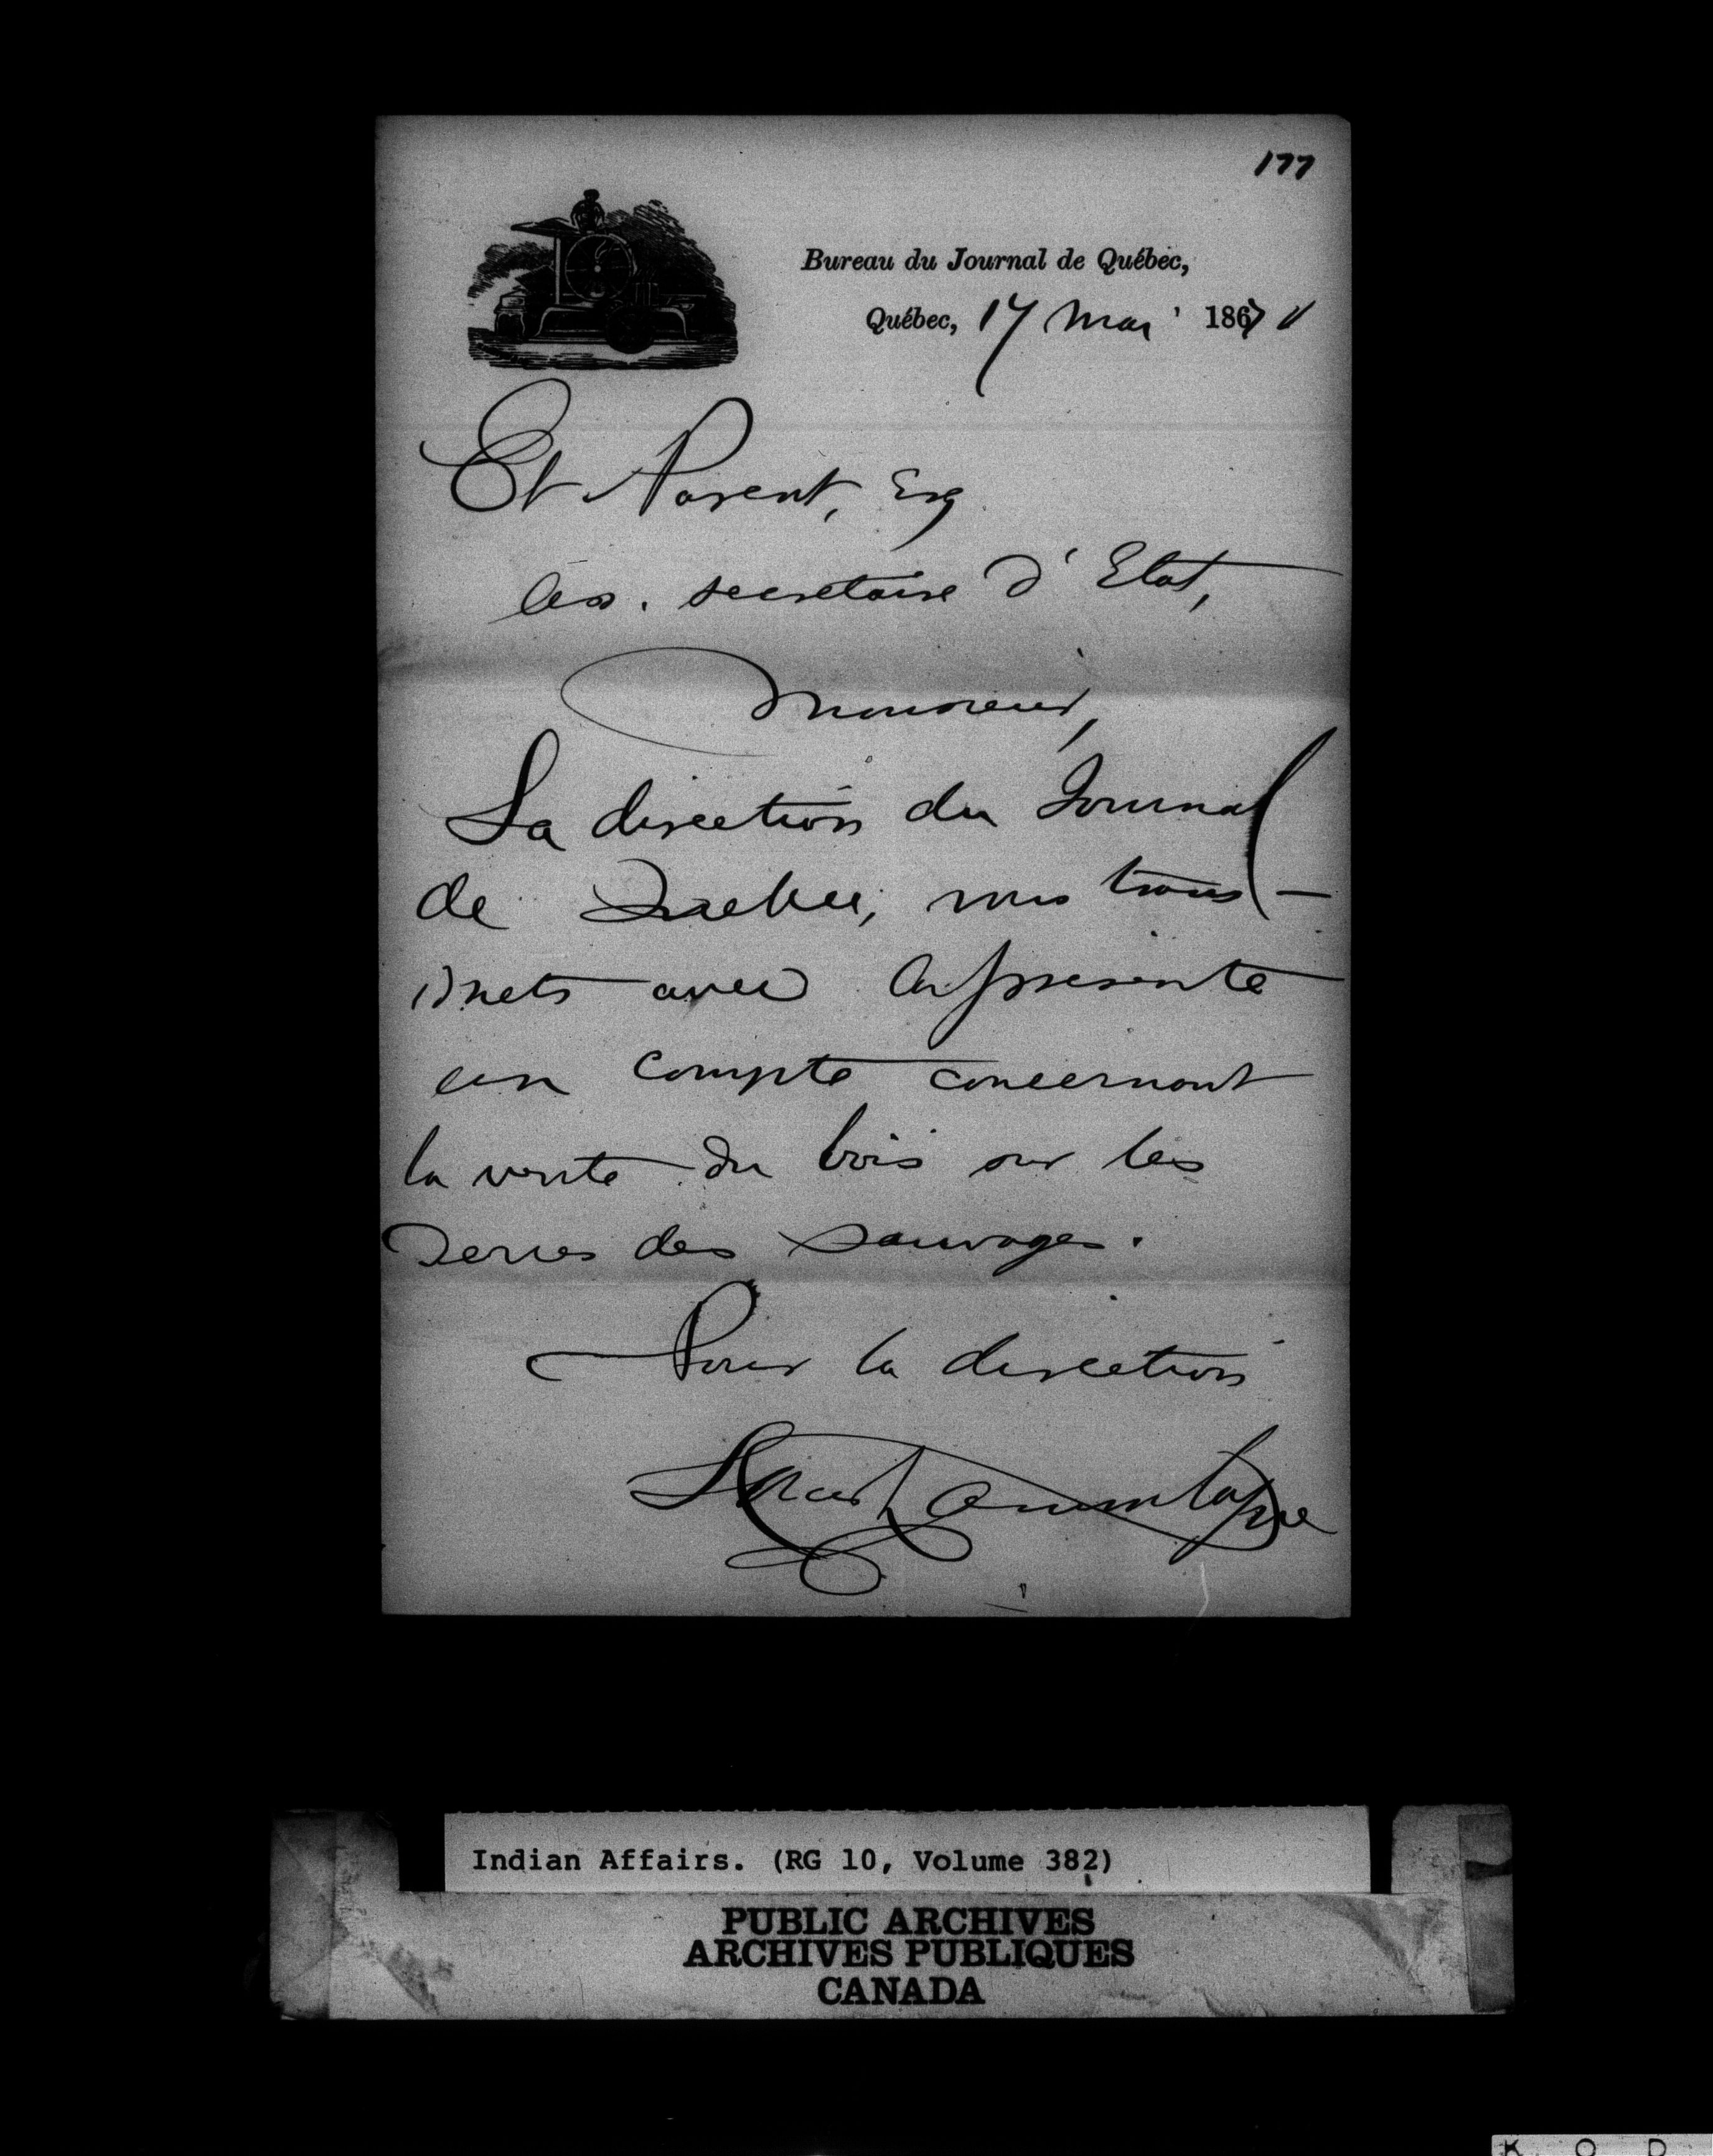 177
Bureau du Journal de Québec,
Québec, 17 Mai 1867 1
Et Parent, Esq
secretaire d'Etat,
Monsieur,
La direction du Journal
de Quebec, vous trans-
mets avec la presente
un compte concernant
la vente du bois sur les
Terres des Sauvages.
Pour la direction
Indian Affairs. (RG 10, Volume 382)
PUBLIC ARCHIVES
ARCHIVES PUBLIQUES
CANADA
K O D